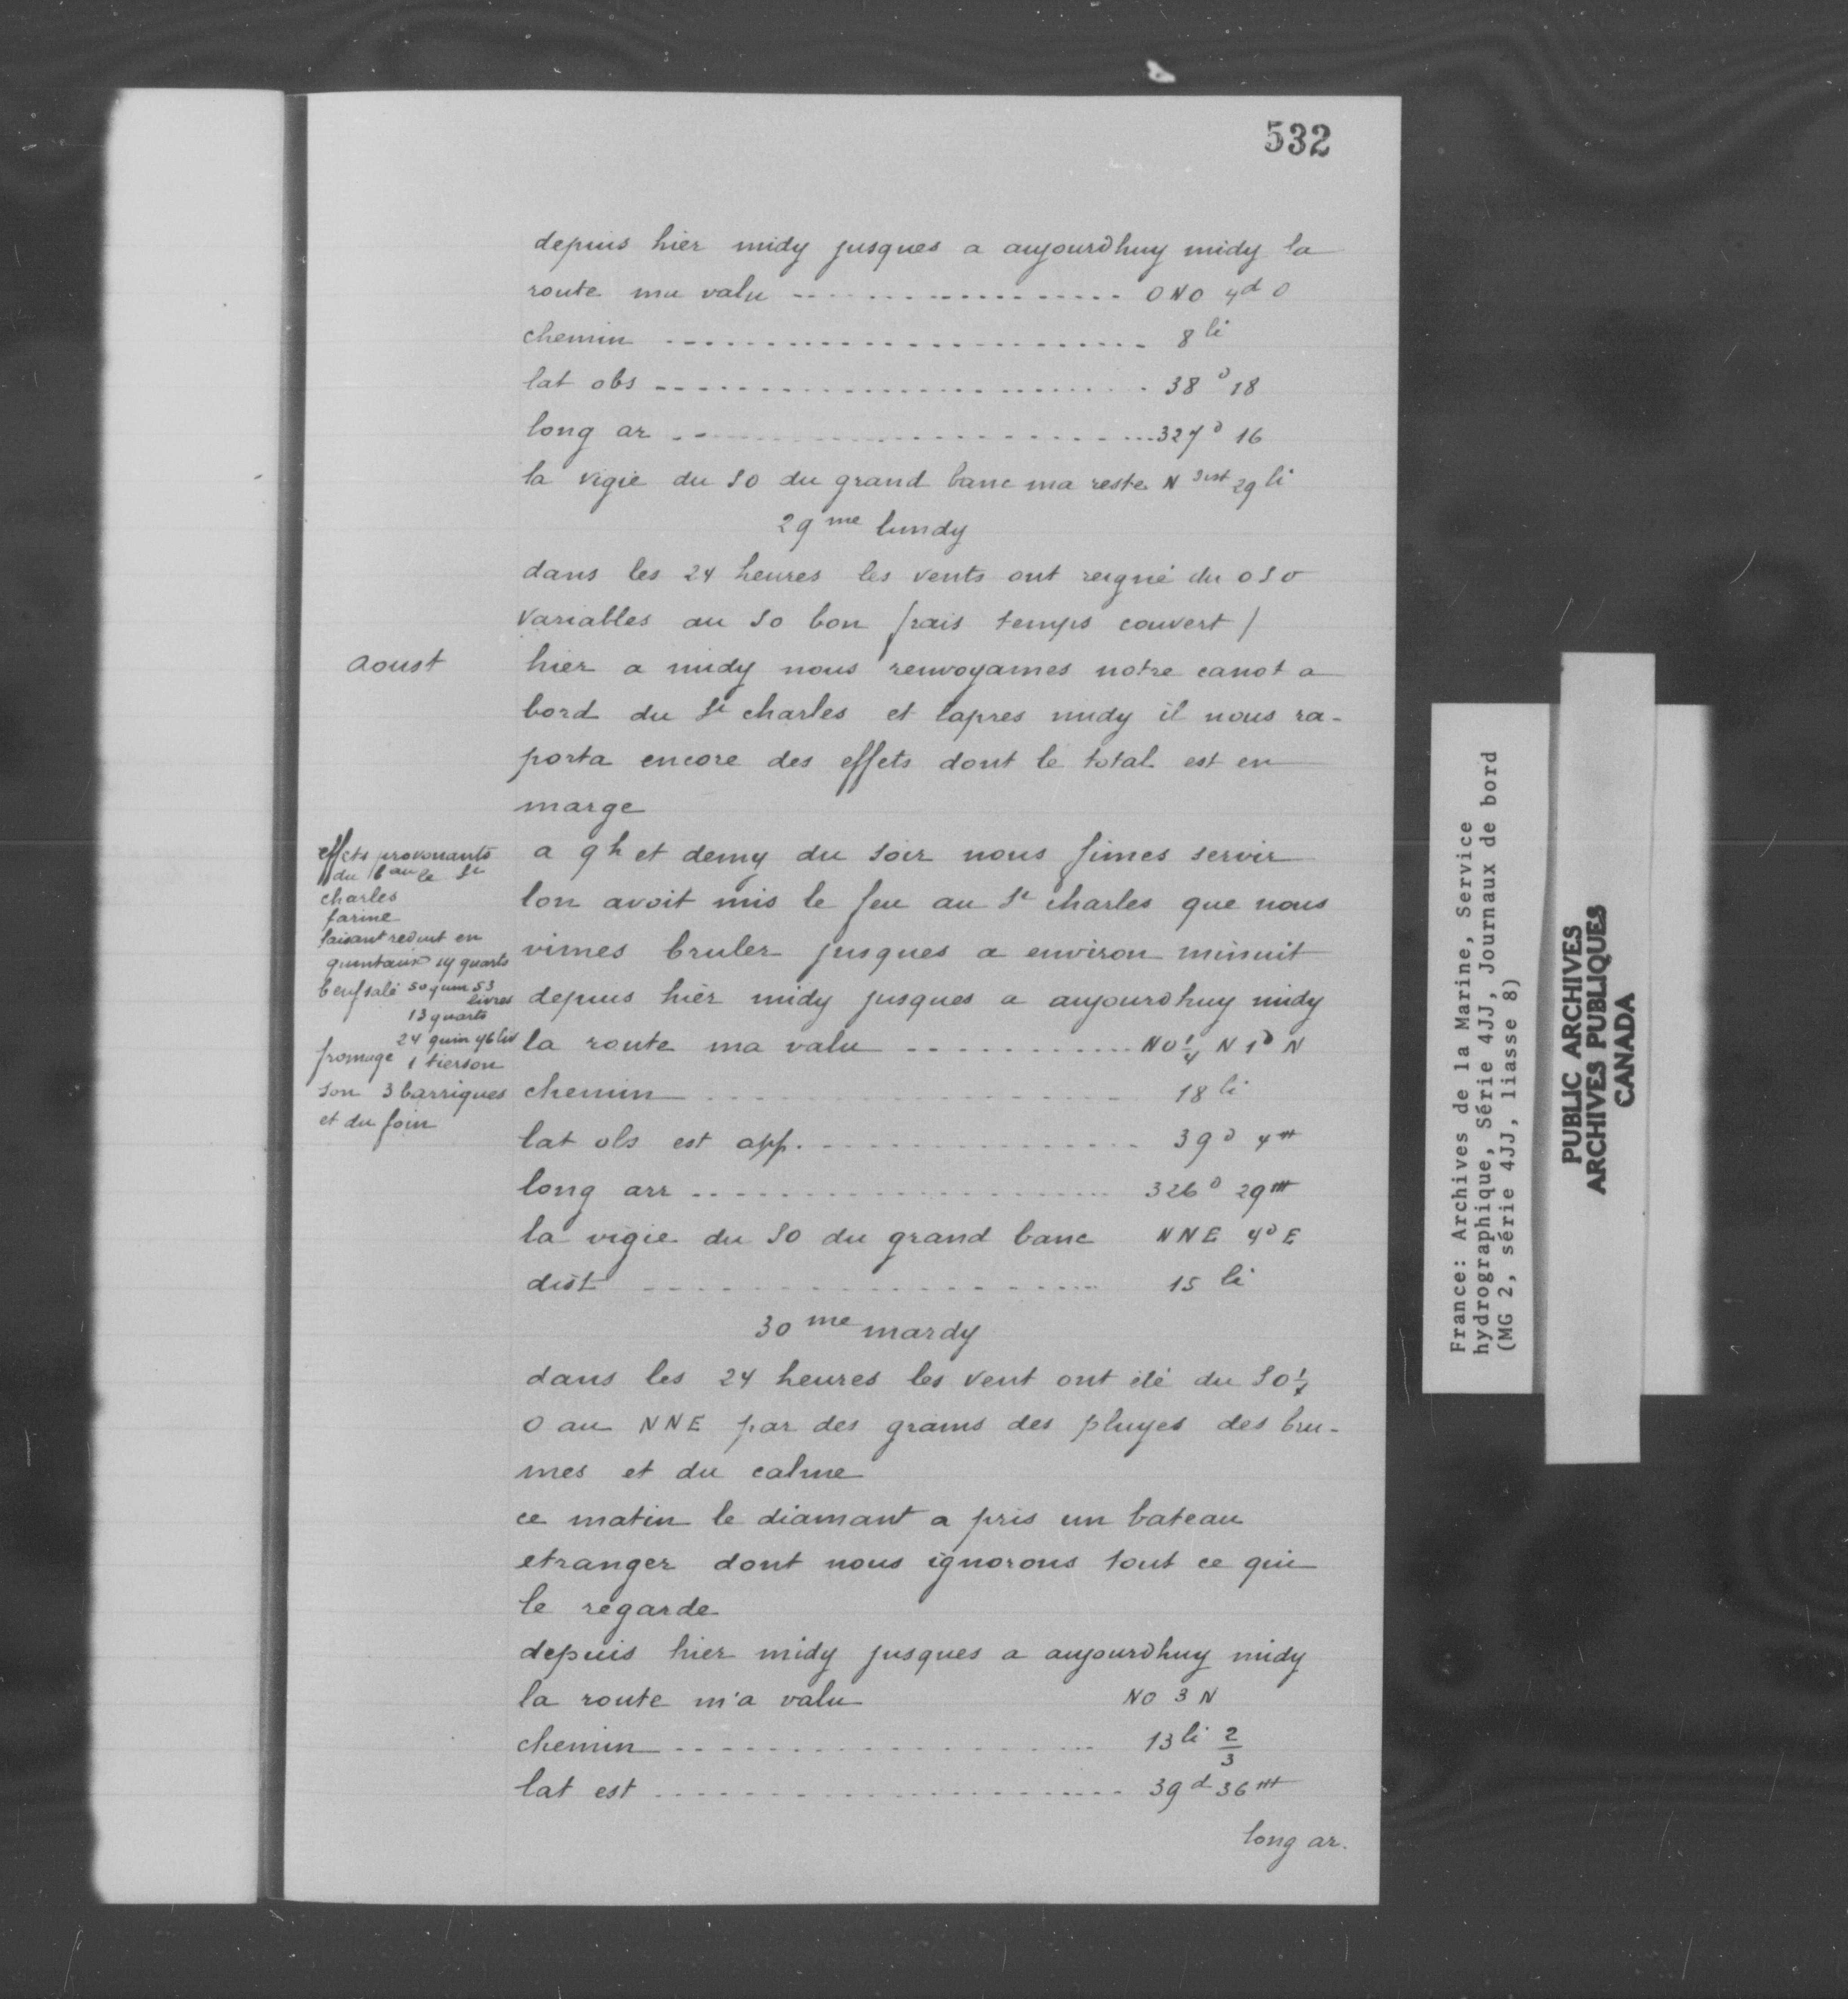 532
depuis hier midy jusques a aujourdhuy midy la
route ma valu ONO 4d O
chemin 8 li
lat obs 38 d 18
long ar 327 d 16
la vigie du SO du grand banc ma reste N dist 29 li
29 me lundy
dans les 24 heures les vents ont reigné du OSO
variables au SO bon frais temps couvert /
aoust
hier a midy nous renvoyames notre canot a
bord du St charles et lapres midy il nous ra-
porta encore des effets dont le total est en
marge
effets provenants
du bau le St
charles
farine
faisant reduit en
quintaux 14 quarts
beuf salé 50 quin 53
livres
13 quarts
24 quin 46 liv
fromage 1 tierson
son 3 barriques
et du foin
a 9h et demy du soir nous fimes servir
lon avoit mis le feu au St charles que nous
vimes bruler jusques a environ minuit
depuis hier midy jusques a aujourdhuy midy
la route ma valu NO 1/4 N 1d N
chemin 18 li
lat obs est app. 39 d 4 m
long arr 326 d 29 m
la vigie du SO du grand banc NNE 4d E
dist 15 li
30 me mardy
dans les 24 heures les vent ont été du SO 1/4
O au NNE par des grains des pluyes des bru-
mes et du calme
ce matin le diamant a pris un bateau
etranger dont nous ignorons tout ce qui
le regarde
depuis hier midy jusques a aujourdhuy midy
la route m'a valu NO 3 N
chemin 13 li 2/3
lat est 39 d 36 m
long ar.
France: Archives de la Marine, Service
hydrographique, Série 4JJ, Journaux de bord
(MG 2, série 4JJ, liasse 8)
PUBLIC ARCHIVES
ARCHIVES PUBLIQUES
CANADA